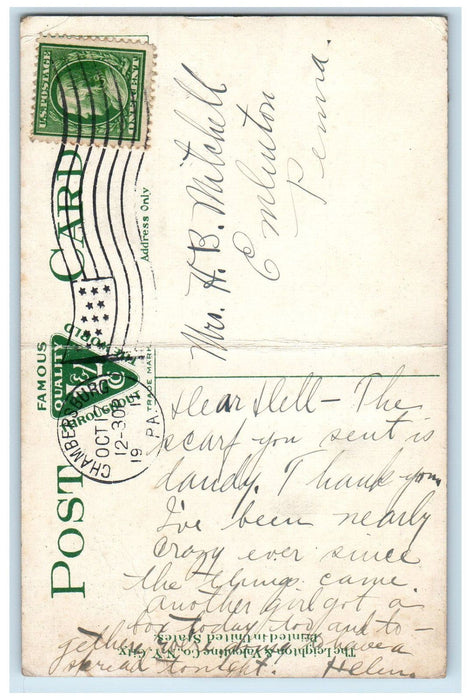 POST CARD
FAMOUS
QUALITY
THROUGHOUT
WORLD
TRADE MARK
Address Only
U.S. POSTAGE
ONE CENT
CHAMBERSBURG
OCT
12-30P
19
PA.
Mrs. H. B. Mitchell
Emlenton
Penna.
Dear Dell – The
scarf you sent is
dandy. Thank-you
I've been nearly
crazy ever since
the things came
another girl got a
box today too and to-
gether
spread tonight. Helen
The Leighton & Valentine Co., N.Y. City.
Printed in United States.